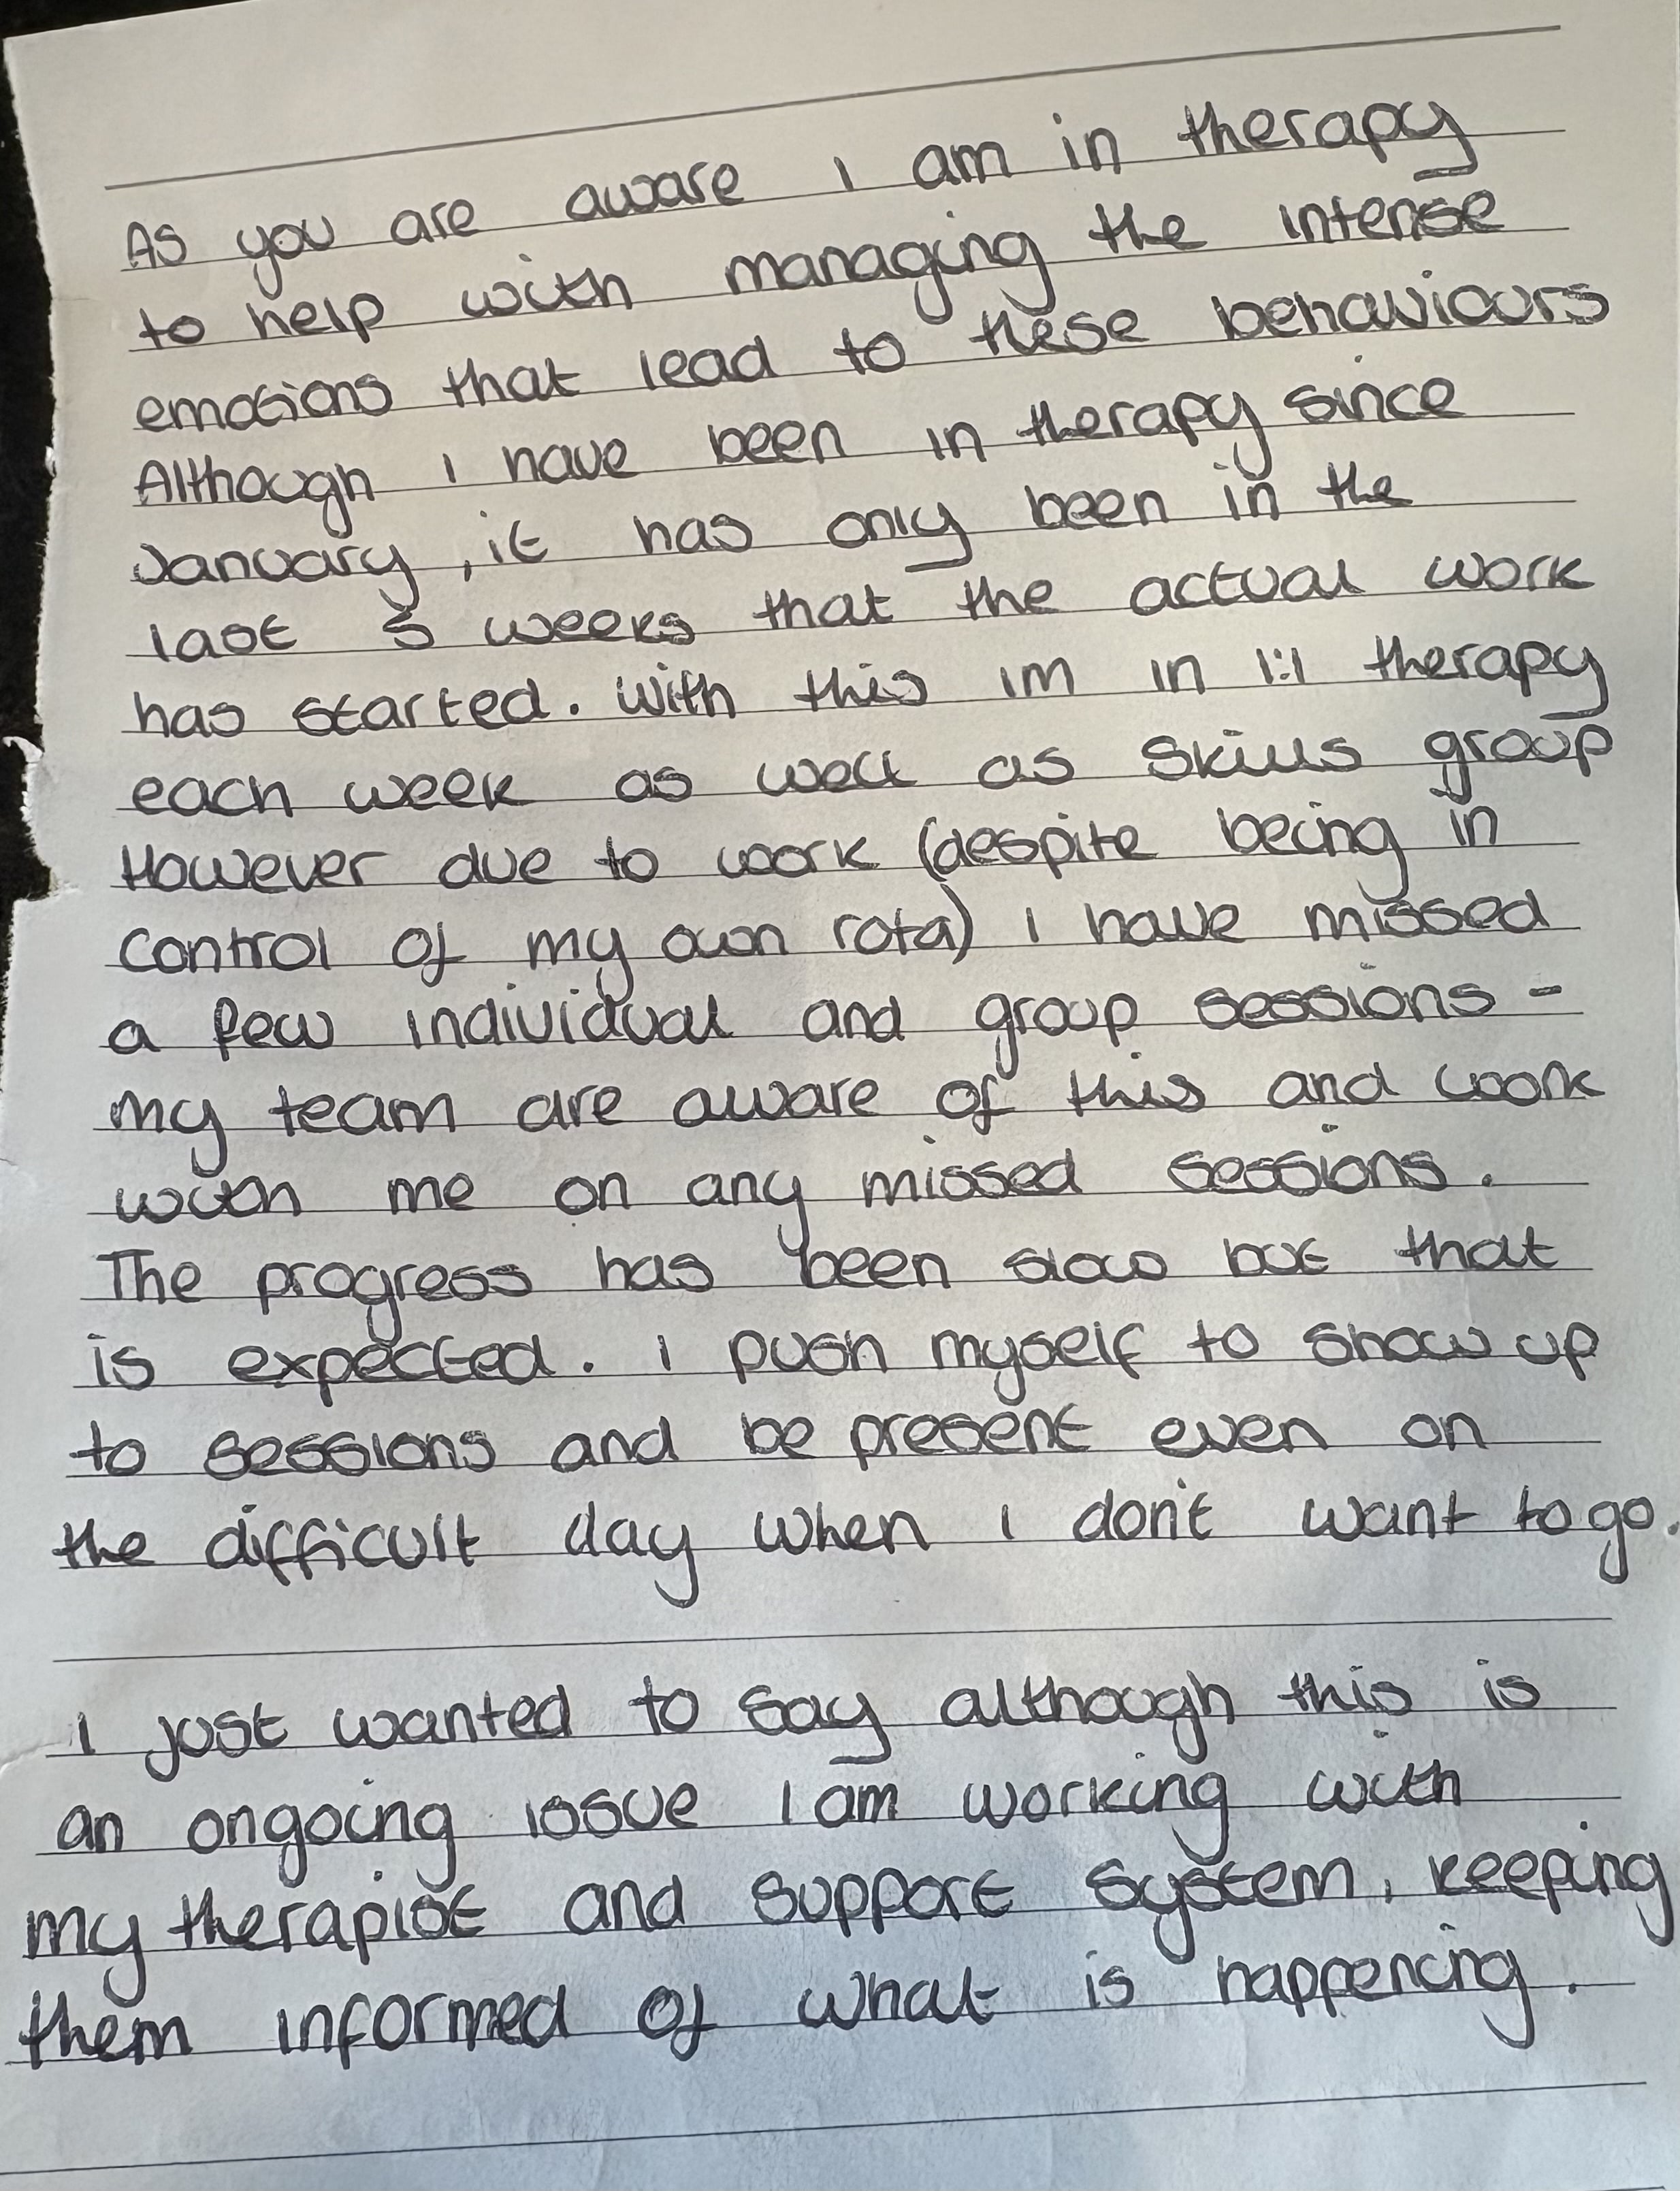 As you are aware I am in therapy
to help with managing the intense
emotions that lead to these behaviours
Although I have been in therapy since
January, it has only been in the
last weeks that the actual work
has started. With this im in 1:1 therapy
each week as well as skills group
However due to work (despite being in
control of my own rota) I have missed
a few individual and group sessions -
my team are aware of this and work
with me on any missed sessions.
The progress has been slow but that
is expected. I push myself to show up
to sessions and be present even on
the difficult day when I don't want to go.
I just wanted to say although this is
an ongoing issue I am working with
my therapist and support system, keeping
them informed of what is happening.